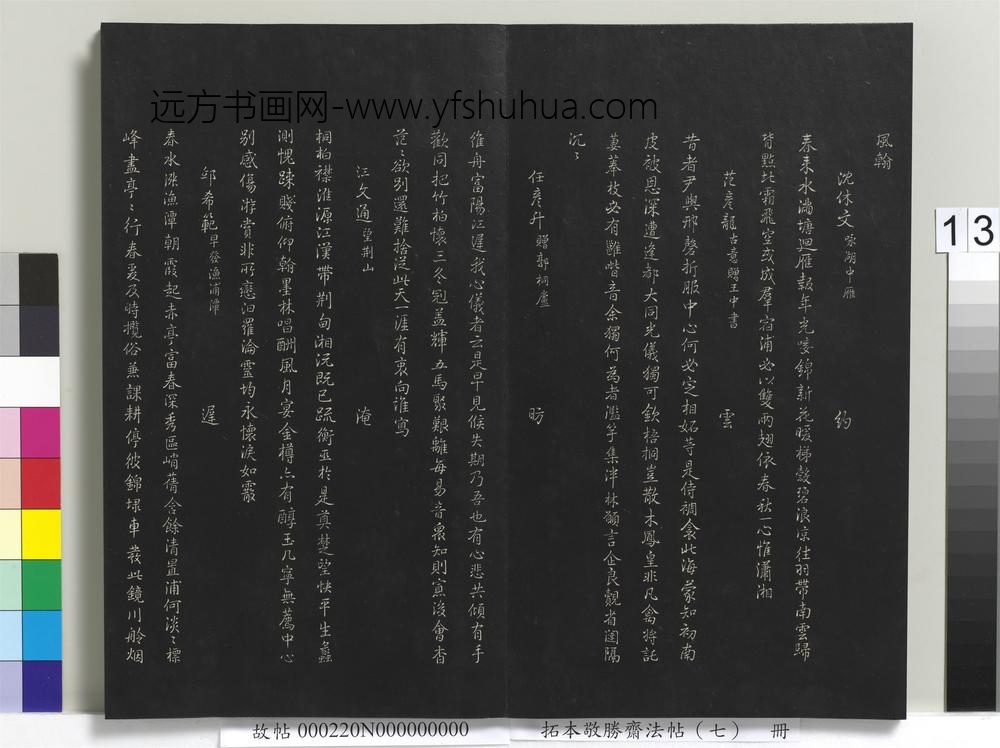 远方书画网-www.yfshuhua.com
風翰
沈休文 詠湖中雁 約
春来水滿塘迴雁報年光唼錦新花暖梯縠碧浪涼往羽帶南雲歸
背點北霜飛空或成羣宿浦必以雙兩翅依春秋一心惟瀟湘
范彦龍 古意贈王中書 雲
昔者尹與邢磬折服中心何必定相妬等是侍裯衾此海蒙知初南
皮被恩深遭逢都大同光儀獨可欽梧桐豈散木鳳皇非凡禽将託
萋菶枝必有噰喈音余獨何為者濫竽集泮林願言企良覿省闥隔
沉〻
任彦升 贈郭桐廬 昉
維舟富陽江遲我心儀者云是早見候失期乃吾也有心悲共傾有手
歡同把竹柏懷三冬冠盖輝五馬聚艱離每易音衆知則寡後會杳
茫〻欲別還難捨從此天一涯有衷向誰寫
江文通 望荆山 淹
桐柏襟淮源江漢帶荆甸湘沅既已疏衡巫於是奠楚望快平生蠡
測愧疎賤俯仰翰墨林唱酬風月宴金樽亦有醇玉几寧無薦中心
別感傷游賞非所戀汨羅淪靈均永懷淚如霰
邱希範 早發漁浦潭 遲
春水漲漁潭朝霞起赤亭富春深秀區峭蒨含餘清置浦何淡〻標
峰盡亭〻行春爰及時攬俗兼課耕停彼錦埭車發此鏡川舲烟
13
故帖 000220N000000000
拓本敬勝齋法帖（七） 冊